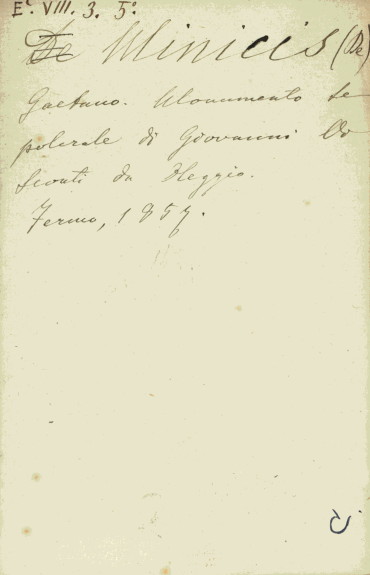 E². VIII. 3. 5°
De Minicis (De)
Gaetano. Monumento se
polcrale di Giovanni Vi
sconti da Oleggio.
Fermo, 1857.